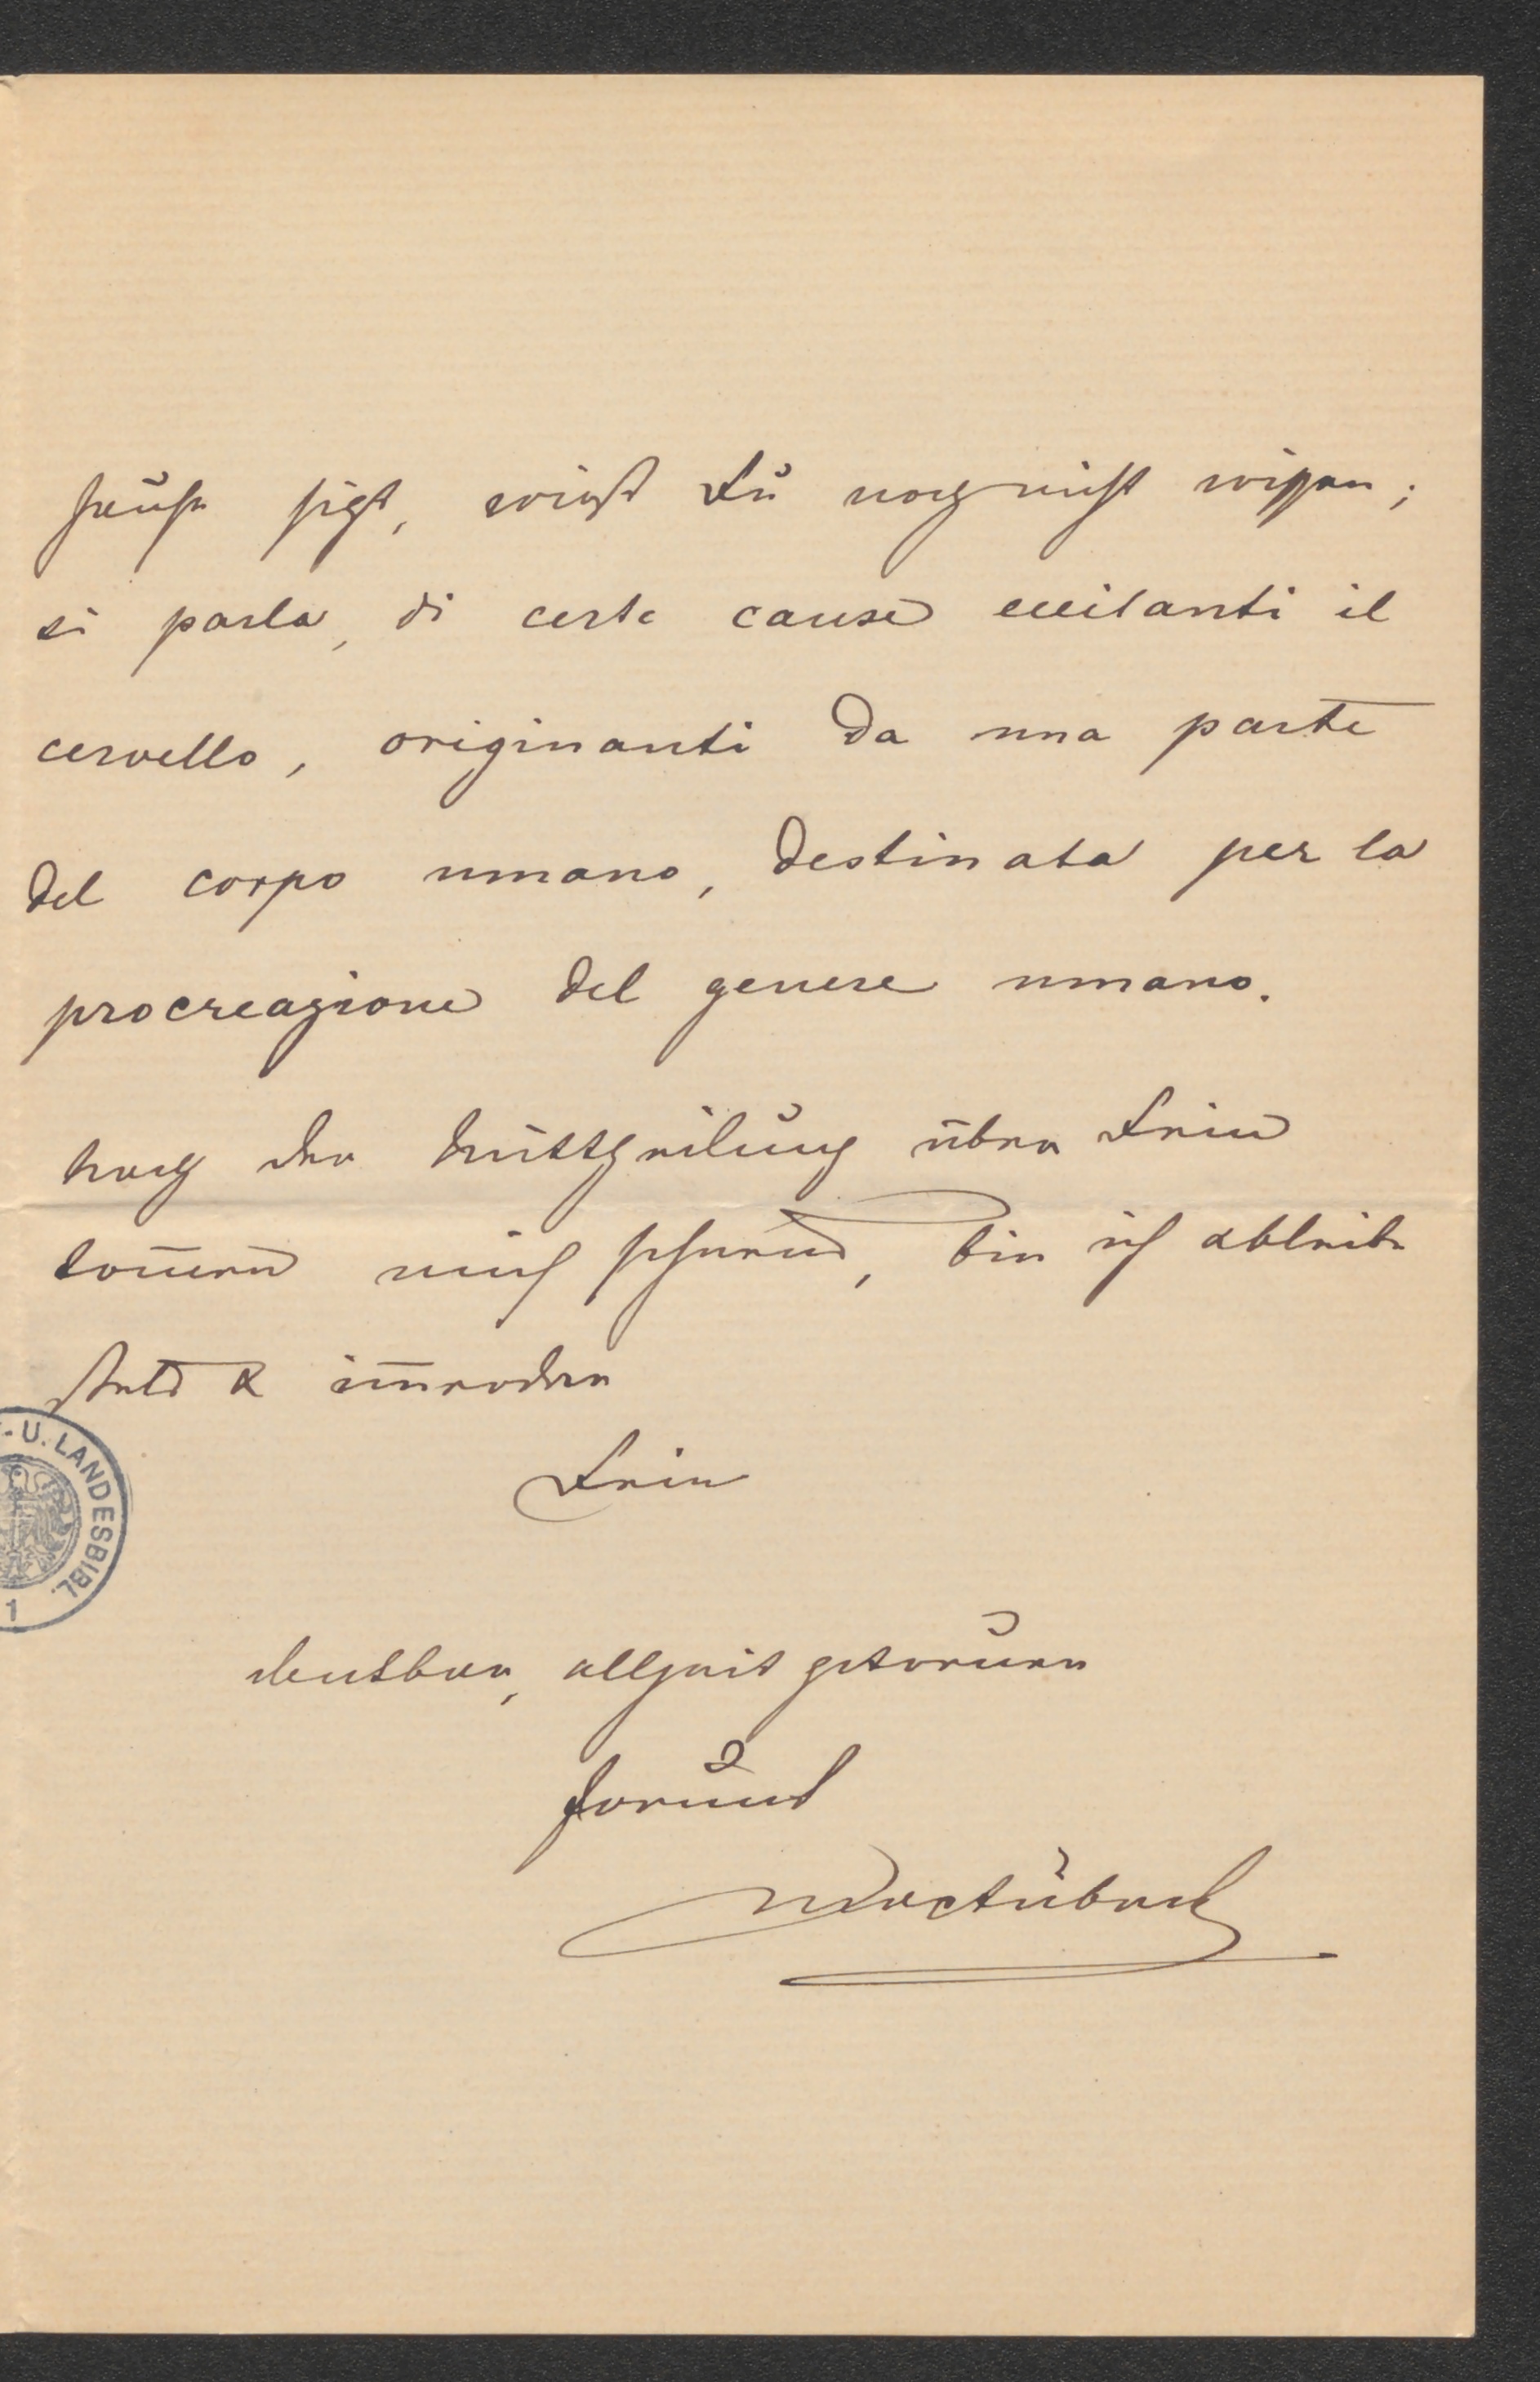 hause sizt, wirst Du noch nicht wissen;
si parla, di certe cause eccitanti il
cervello, originanti da una parte
del corpo umano, destinata per la
procreazione del genere umano.
Nach der Mittheilung über Dein
kom̄en mich sehnend, bin ich & bleibe
stets & im̄erdar
Dein
dankbar, allzeit getreuer
Freund
U. LANDESBIBL.
1